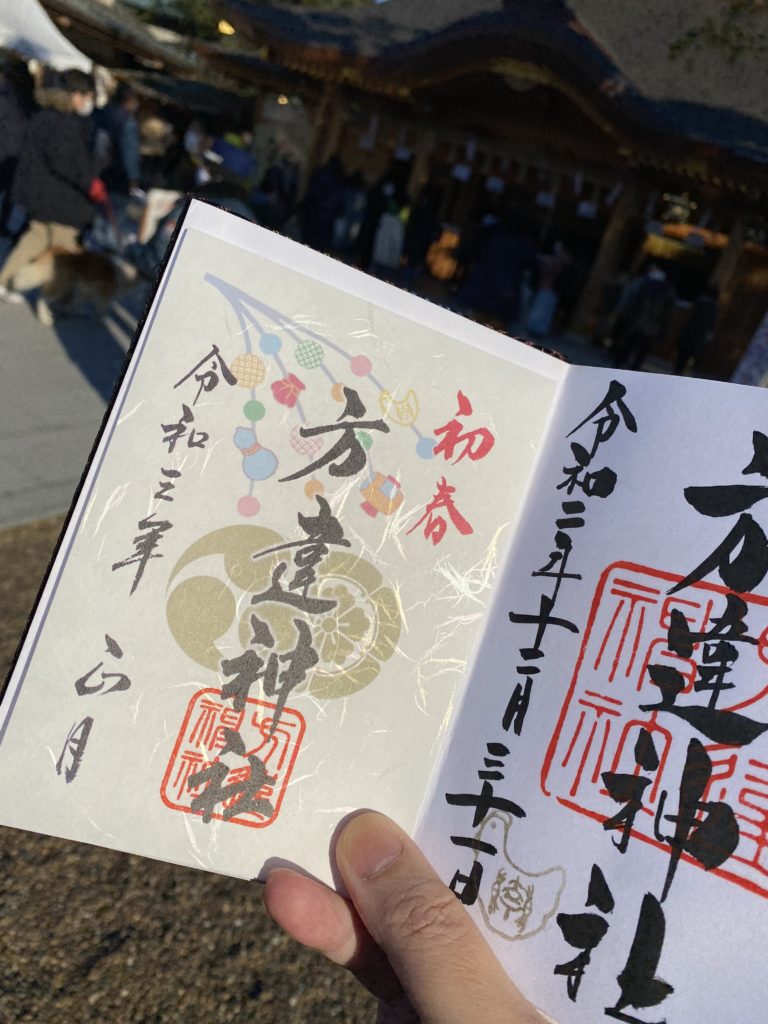 方違神社
令和二年十二月三十一日
初春
方違神社
令和三年 正月